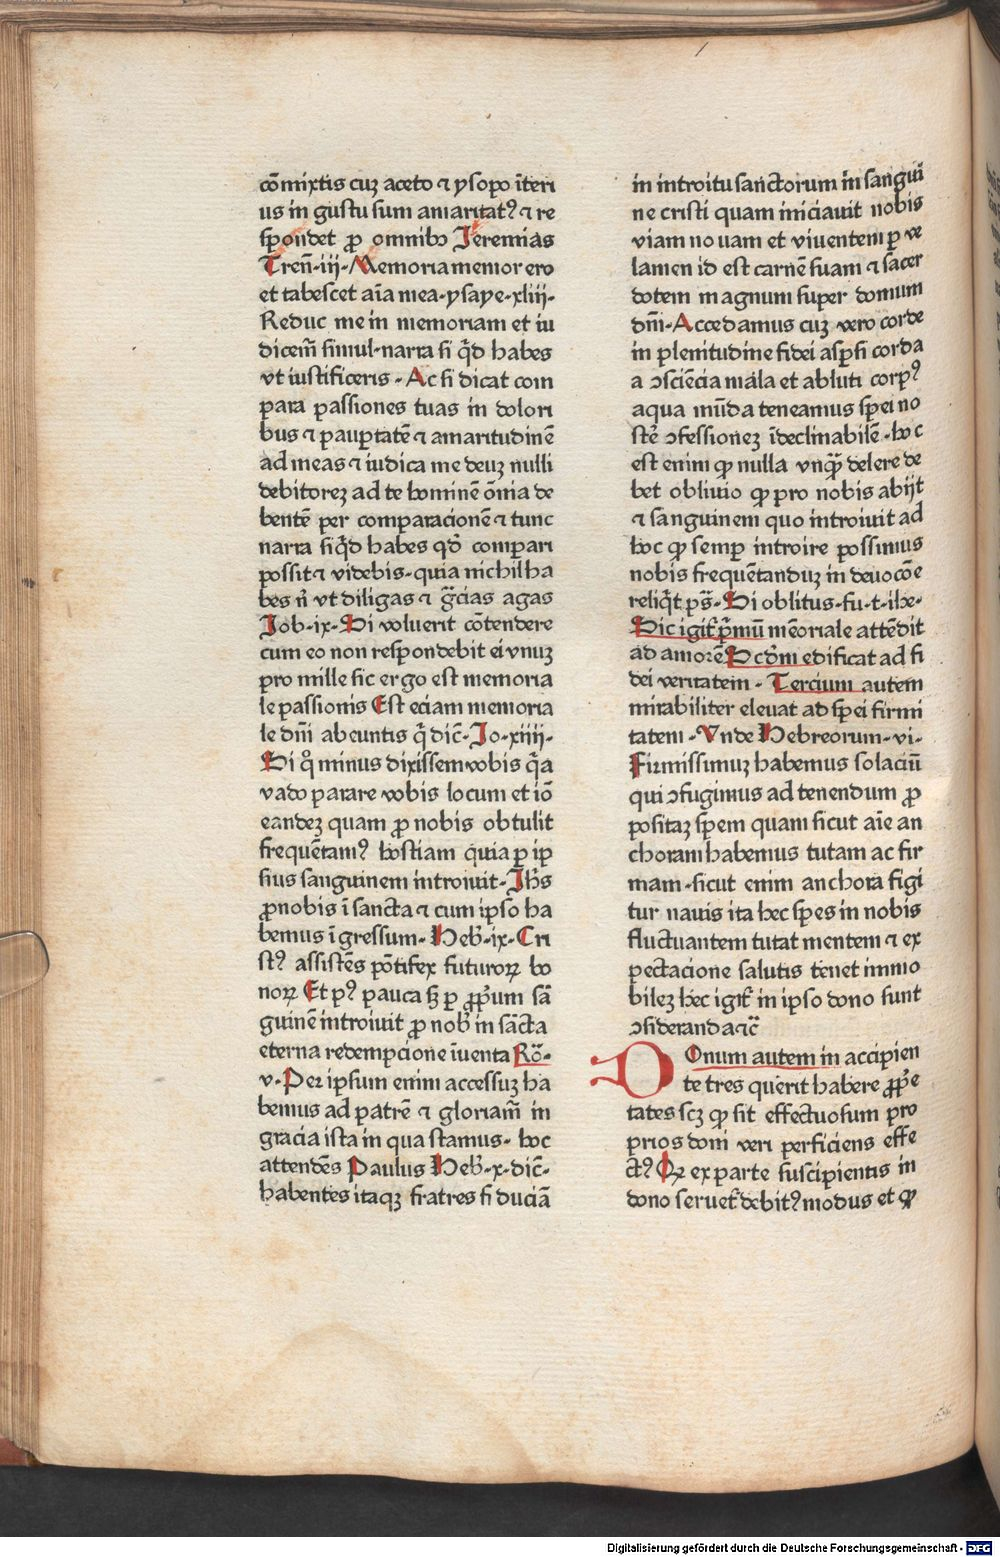 cōmixtis cuȝ aceto ⁊ ysopo īteri
us in gustu sum amaritatꝰ ⁊ re
spondet ꝓ omnibꝫ Jeremias
Tren̄·iij·Memoria memor ero
et tabescet aīa mea·ysaye·xliij·
Reduc me in memoriam et iu
dicem̄ simul·narra si q̄d habes
vt iustificeris·Ac si dicat com
para passiones tuas in dolori
bus ⁊ pauꝑtatē ⁊ amaritudinē
ad meas ⁊ iudica me deuȝ nulli
debitoreȝ ad te hominē om̄ia de
bentē per comparacionē ⁊ tunc
narra si q̄d habes qd̄ compari
possit ⁊ videbis·quia nichil ha
bes n̄ vt diligas ⁊ gr̄cias agas
Job·ix·Si voluerit cōtendere
cum eo non respondebit ei vnuȝ
pro mille sic ergo est memoria
le passionis Est eciam memoria
le dn̄i abeuntis q̄ dic̄·Jo·xiiij·
Si qͦ minus dixissem vobis q̄a
vado parare vobis locum et iō
eandeȝ quam ꝓ nobis obtulit
frequētamꝰ hostiam quia ꝑ ip
sius sanguinem introiuit·Jhs̄
ꝓ nobis ī sancta ⁊ cum ipso ha
bemus īgressum·Heb̄·ix·Cri
stꝰ assistēs pōtifex futuroꝝ bo
noꝝ Et pꝰ pauca sꝫ ꝑ ꝓpͥum sā
guinē introiuit ꝓ nob̄ in sācta
eterna redempcione īuenta Ro̅·
v·Per ipsum enim accessuȝ ha
bemus ad patrē ⁊ gloriam̄ in
gracia ista in qua stamus·hoc
attendēs Paulus Heb̄·x·dic̄·
habentes itaqꝫ fratres fiduciā
in introitu sanctorum in sangui
ne cristi quam iniciauit nobis
viam nouam et viuentem ꝑ ve
lamen id est carnē suam ⁊ sacer
dotem magnum super domum
dn̄i·Accedamus cuȝ vero corde
in plenitudine fidei aspersi corda
a ↄsciēcia mala et abluti corpꝰ
aqua mūda teneamus spei no
stre ↄfessioneȝ īdeclinabilē·hoc
est enim ꝙ nulla vnq̄ꝫ delere de
bet obliuio ꝙ pro nobis abijt
⁊ sanguinem quo introiuit ad
hoc ꝙ semꝑ introire possimus
nobis frequētanduȝ in deuocōe
reliq̄t ps̄·Si oblitus·fu·t·ihe·
Sic igit̄ p̄mū mēoriale attēdit
ad amorē Scd̄m edificat ad fi
dei veritatem·Tercium autem
mirabiliter eleuat ad spei firmi
tatem·Vnde Hebreorum·vi·
Firmissimuȝ habemus solaciū
qui ↄfugimus ad tenendum ꝓ
positaȝ spem quam sicut aīe an
choram habemus tutam ac fir
mam·sicut enim anchora figi
tur nauis ita hec spes in nobis
fluctuantem tutat mentem ⁊ ex
pectacione salutis tenet immo
bileȝ hec igit̄ in ipso dono sunt
ↄsideranda ⁊c̄
DOnum autem in accipien
te tres querit habere ꝓp̄e
tates scꝫ ꝙ sit effectuosum pro
prios doni veri perficiens effe
ctꝰ Qꝫ ex parte suscipientis in
dono seruet̄ debitꝰ modus et ꝙ
Digitalisierung gefördert durch die Deutsche Forschungsgemeinschaft - DFG